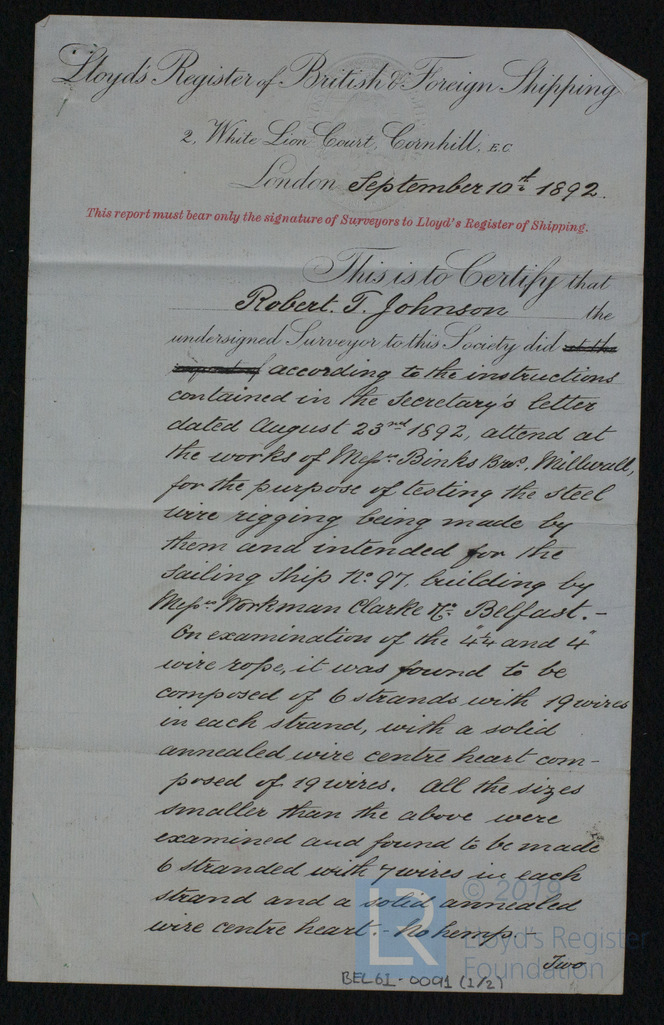 Lloyd's Register of British & Foreign Shipping
2, White Lion Court, Cornhill, E.C.
London September 10th 1892.
This report must bear only the signature of Surveyors to Lloyd's Register of Shipping.
This is to Certify that
Robert. T. Johnson the
undersigned Surveyor to this Society did at the
request of according to the instructions
contained in the Secretary's letter
dated August 23rd 1892, attend at
the works of Messrs Binks Bros. Millwall,
for the purpose of testing the steel
wire rigging being made by
them and intended for the
sailing ship No 97, building by
Messrs Workman Clarke & Co Belfast. -
On examination of the 4 1/4" and 4"
wire rope, it was found to be
composed of 6 strands with 19 wires
in each strand, with a solid
annealed wire centre heart com-
posed of 19 wires. All the sizes
smaller than the above were
examined and found to be made
6 stranded with 7 wires in each
strand and a solid annealed
wire centre heart. - No hemp. -
Two
LR © 2019
Lloyd's Register
Foundation
BEL61-0091 (1/2)